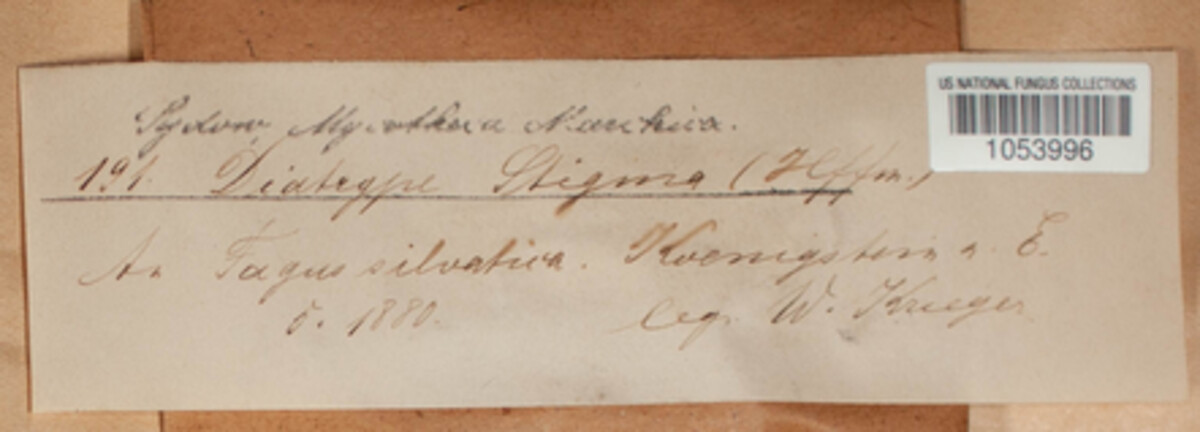 Sydow, Mycotheca Marchica.
US NATIONAL FUNGUS COLLECTIONS
1053996
191. Diatrype Stigma (Hffm.)
An Fagus silvatica. Koenigstein a. E.
5. 1880. leg. W. Krieger